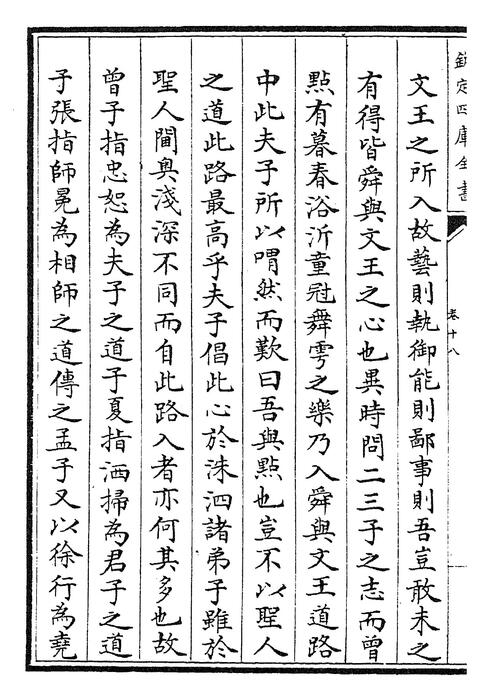 欽定四庫全書
卷十八
文王之所入故藝則執御能則鄙事則吾豈敢未之
有得皆舜與文王之心也異時問二三子之志而曾
點有暮春浴沂童冠舞雩之樂乃入舜與文王道路
中此夫子所以喟然而歎曰吾與點也豈不以聖人
之道此路最高乎夫子倡此心於洙泗諸弟子雖於
聖人閫奥淺深不同而自此路入者亦何其多也故
曾子指忠恕為夫子之道子夏指洒掃為君子之道
子張指師冕為相師之道傳之孟子又以徐行為堯